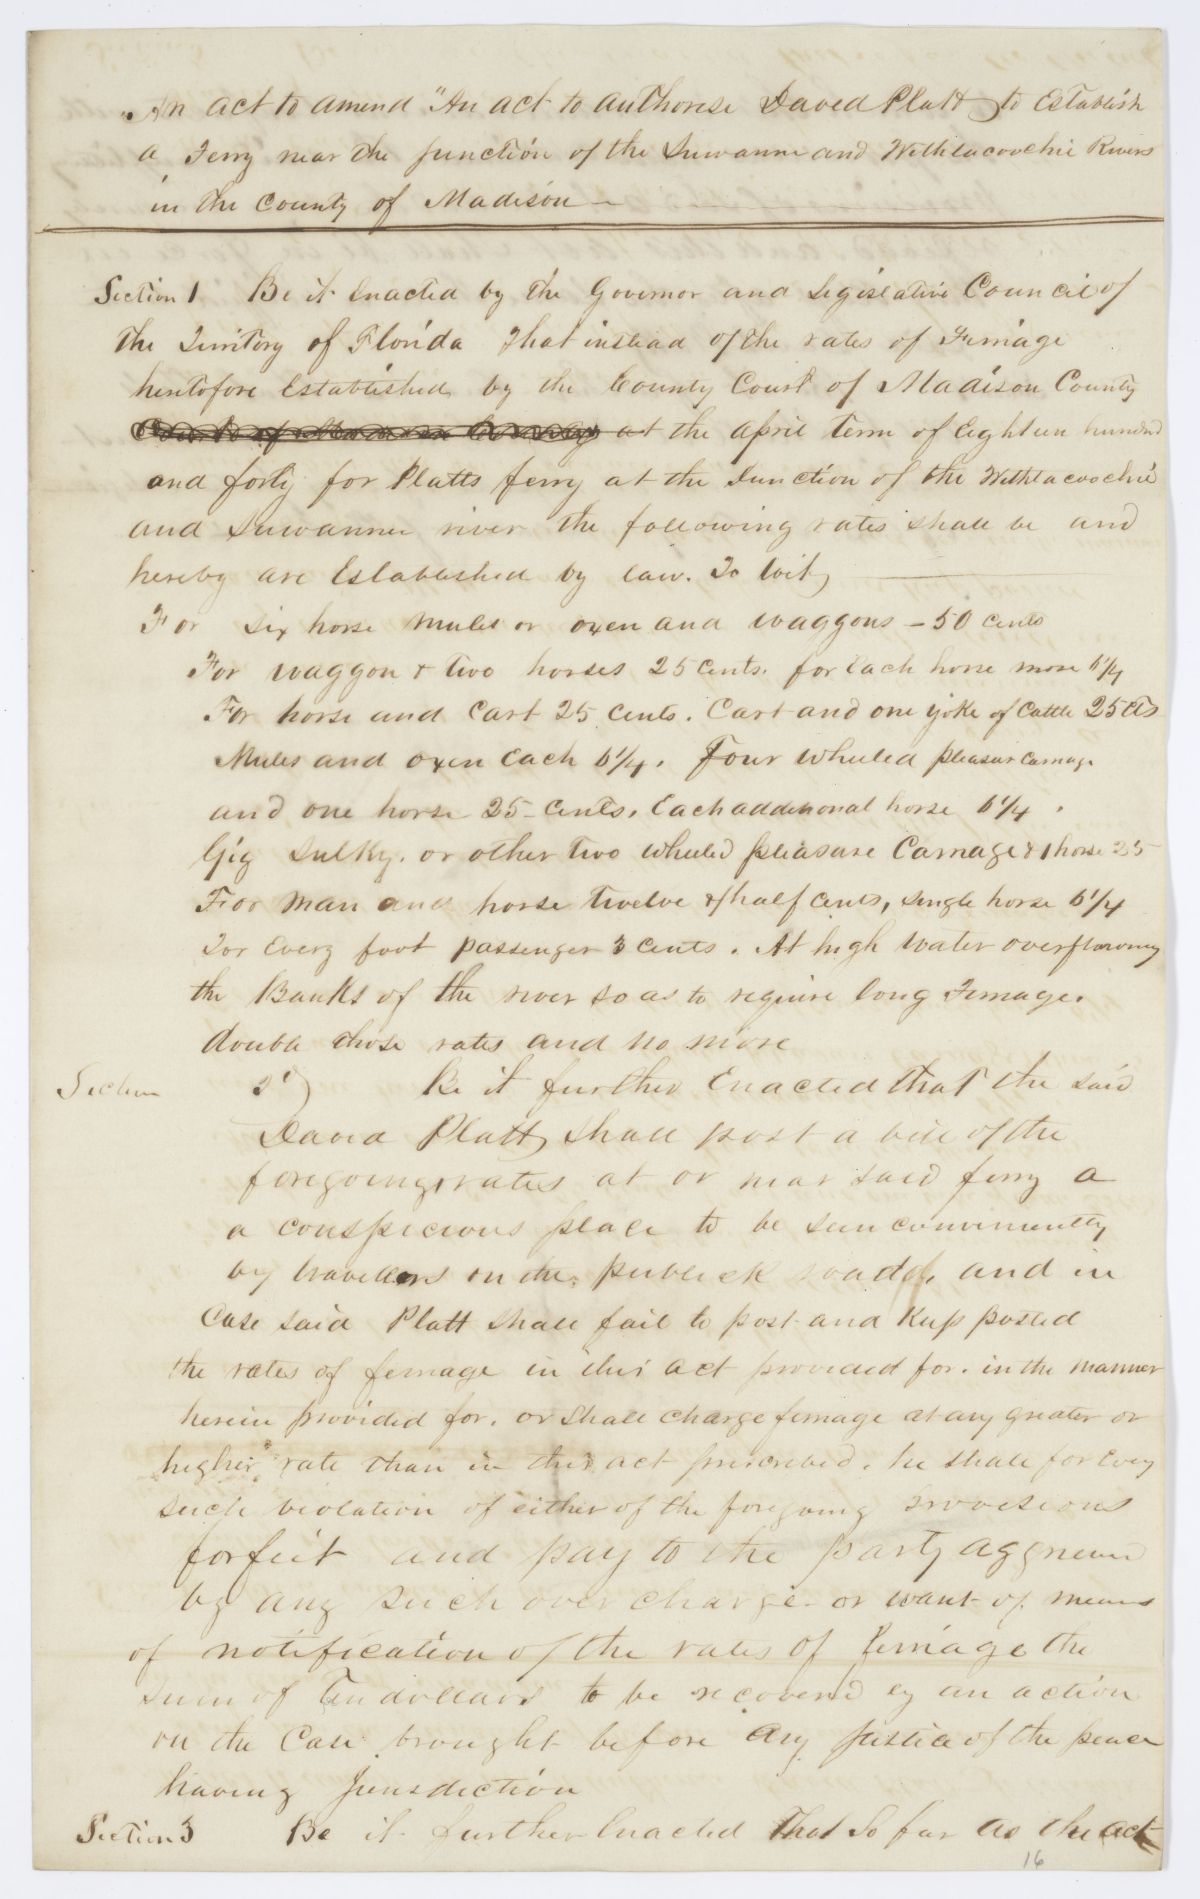 An act to amend "An act to authorise Daved Platt to Establish
a Ferry near the junction of the Suwanne and Withlacoochie Rivers
in the County of Madison
Section 1 Be it Enacted by the Governor and Legislative Council of
the Territory of Florida That instead of the rates of Ferriage
heretofore Established by the County Court of Madison County
at the April Term of Eighteen hundred
and forty for Platts ferry at the Junction of the Withlacoochie
and Suwannee river the following rates shall be and
hereby are Established by law. To Wit,
For six horse mules or oxen and waggons - 50 cents
For waggon & two horses 25 cents. for Each horse more 6¼
For horse and Cart 25 cents. Cart and one yoke of Cattle 25 cts
Mules and oxen Each 6¼. Four wheeled pleasur carriage
and one horse 25 cents. Each additional horse 6¼.
Gig Sulky. or other two wheeled pleasure Carriage & 1 horse 25
For man and horse twelve & half cents, single horse 6¼
For Every foot passenger 3 cents. At high water overflowing
the Banks of the river so as to require long Ferriage.
double those rates and no more
Section 2d) Be it further Enacted that the said
David Platt shall post a bill of the
foregoing rates at or near said ferry a
a conspicious place to be seen conveniently
by travellers on the publick roadd, and in
Case said Platt shall fail to post and Keep posted
the rates of ferriage in this act provided for. in the manner
herein provided for. or shall charge ferriage at any greater or
higher rate than in this act prescribed. he shall for Every
such violation of either of the foregoing provisions
forfeit and pay to the party aggrieved
by any such over charge or want of means
of notification of the rates of ferriage the
sum of Ten dollars to be recovered by an action
on the Case brought before any justice of the peace
having Jurisdiction
Section 3 Be it further Enacted That So far as the act
16